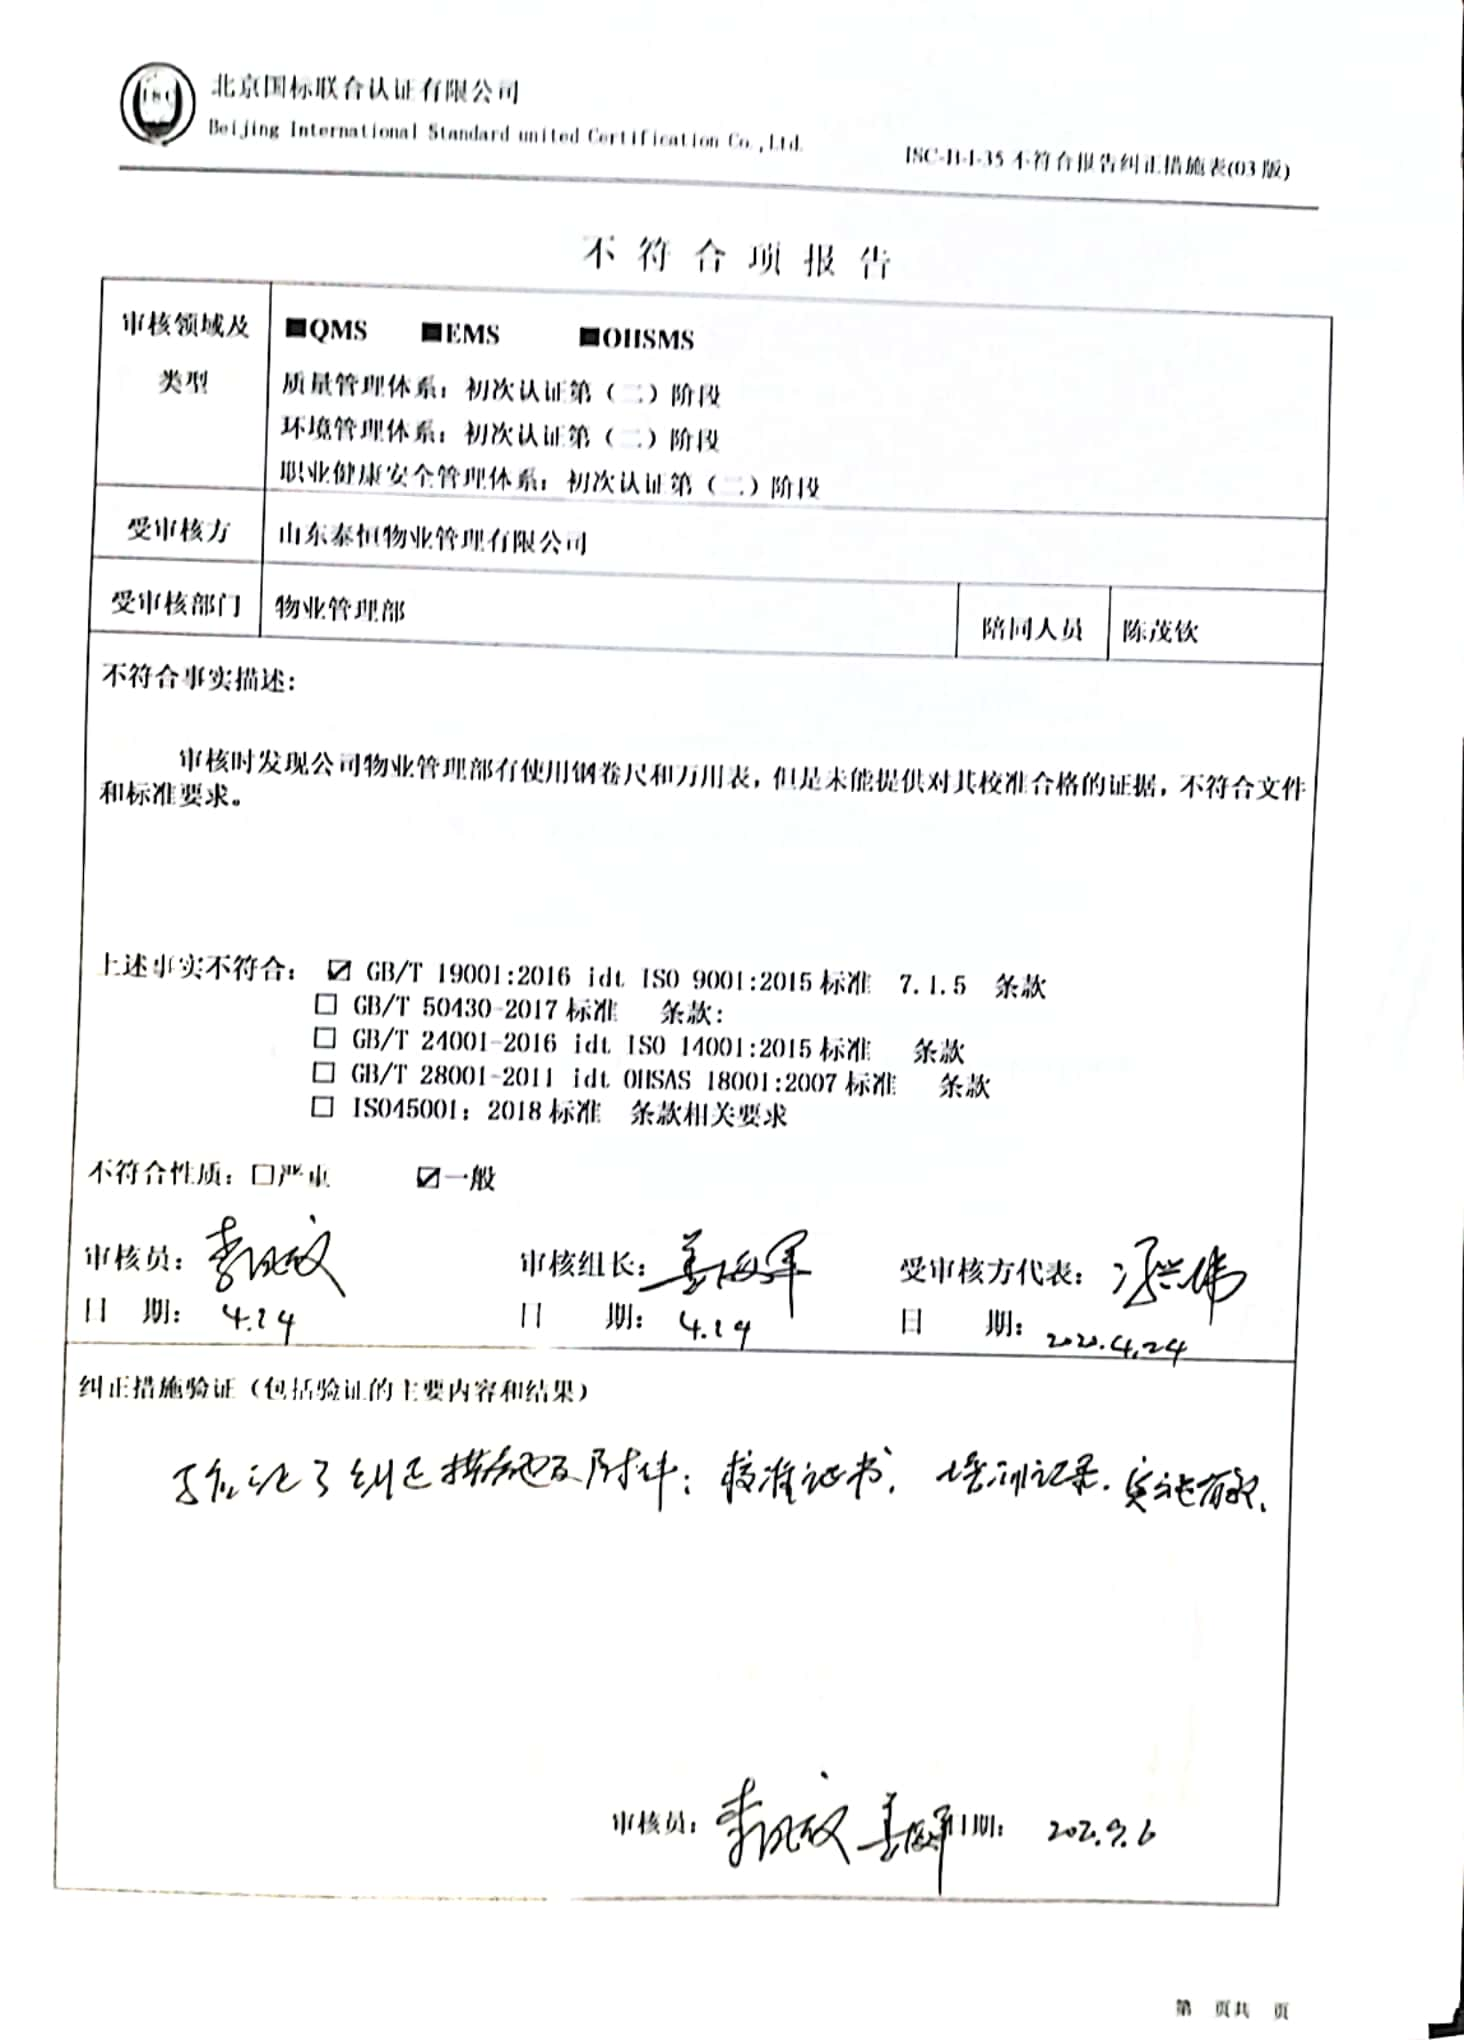 ISC
北京国标联合认证有限公司
Beijing International Standard united Certification Co.,Ltd.
ISC-B-I-35 不符合报告纠正措施表(03 版)
不符合项报告
审核领域及类型
■QMS ■EMS ■OHSMS
质量管理体系：初次认证第（二）阶段
环境管理体系：初次认证第（二）阶段
职业健康安全管理体系：初次认证第（二）阶段
受审核方 山东泰恒物业管理有限公司
受审核部门 物业管理部 陪同人员 陈茂钦
不符合事实描述：
审核时发现公司物业管理部有使用钢卷尺和万用表，但是未能提供对其校准合格的证据，不符合文件
和标准要求。
上述事实不符合： ☑ GB/T 19001:2016 idt ISO 9001:2015 标准 7.1.5 条款
□ GB/T 50430-2017 标准 条款：
□ GB/T 24001-2016 idt ISO 14001:2015 标准 条款
□ GB/T 28001-2011 idt OHSAS 18001:2007 标准 条款
□ ISO45001：2018 标准 条款相关要求
不符合性质：□严重 ☑一般
审核员： 审核组长： 受审核方代表：
日 期： 4.24 日 期： 4.24 日 期： 2020.4.24
纠正措施验证（包括验证的主要内容和结果）
验证了纠正措施及附件：校准证书、培训记录.实施有效.
审核员： 日期：
第 页共 页